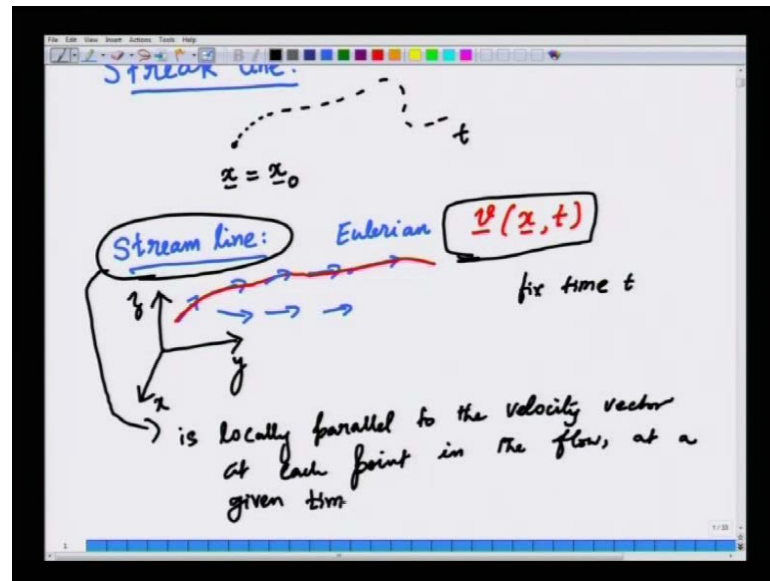 File Edit View Insert Actions Tools Help
Streak line:
t
x = x0
Stream line: Eulerian v(x, t)
fix time t
z
y
x
is locally parallel to the velocity vector
at each point in the flow, at a
given tim
1/33
1